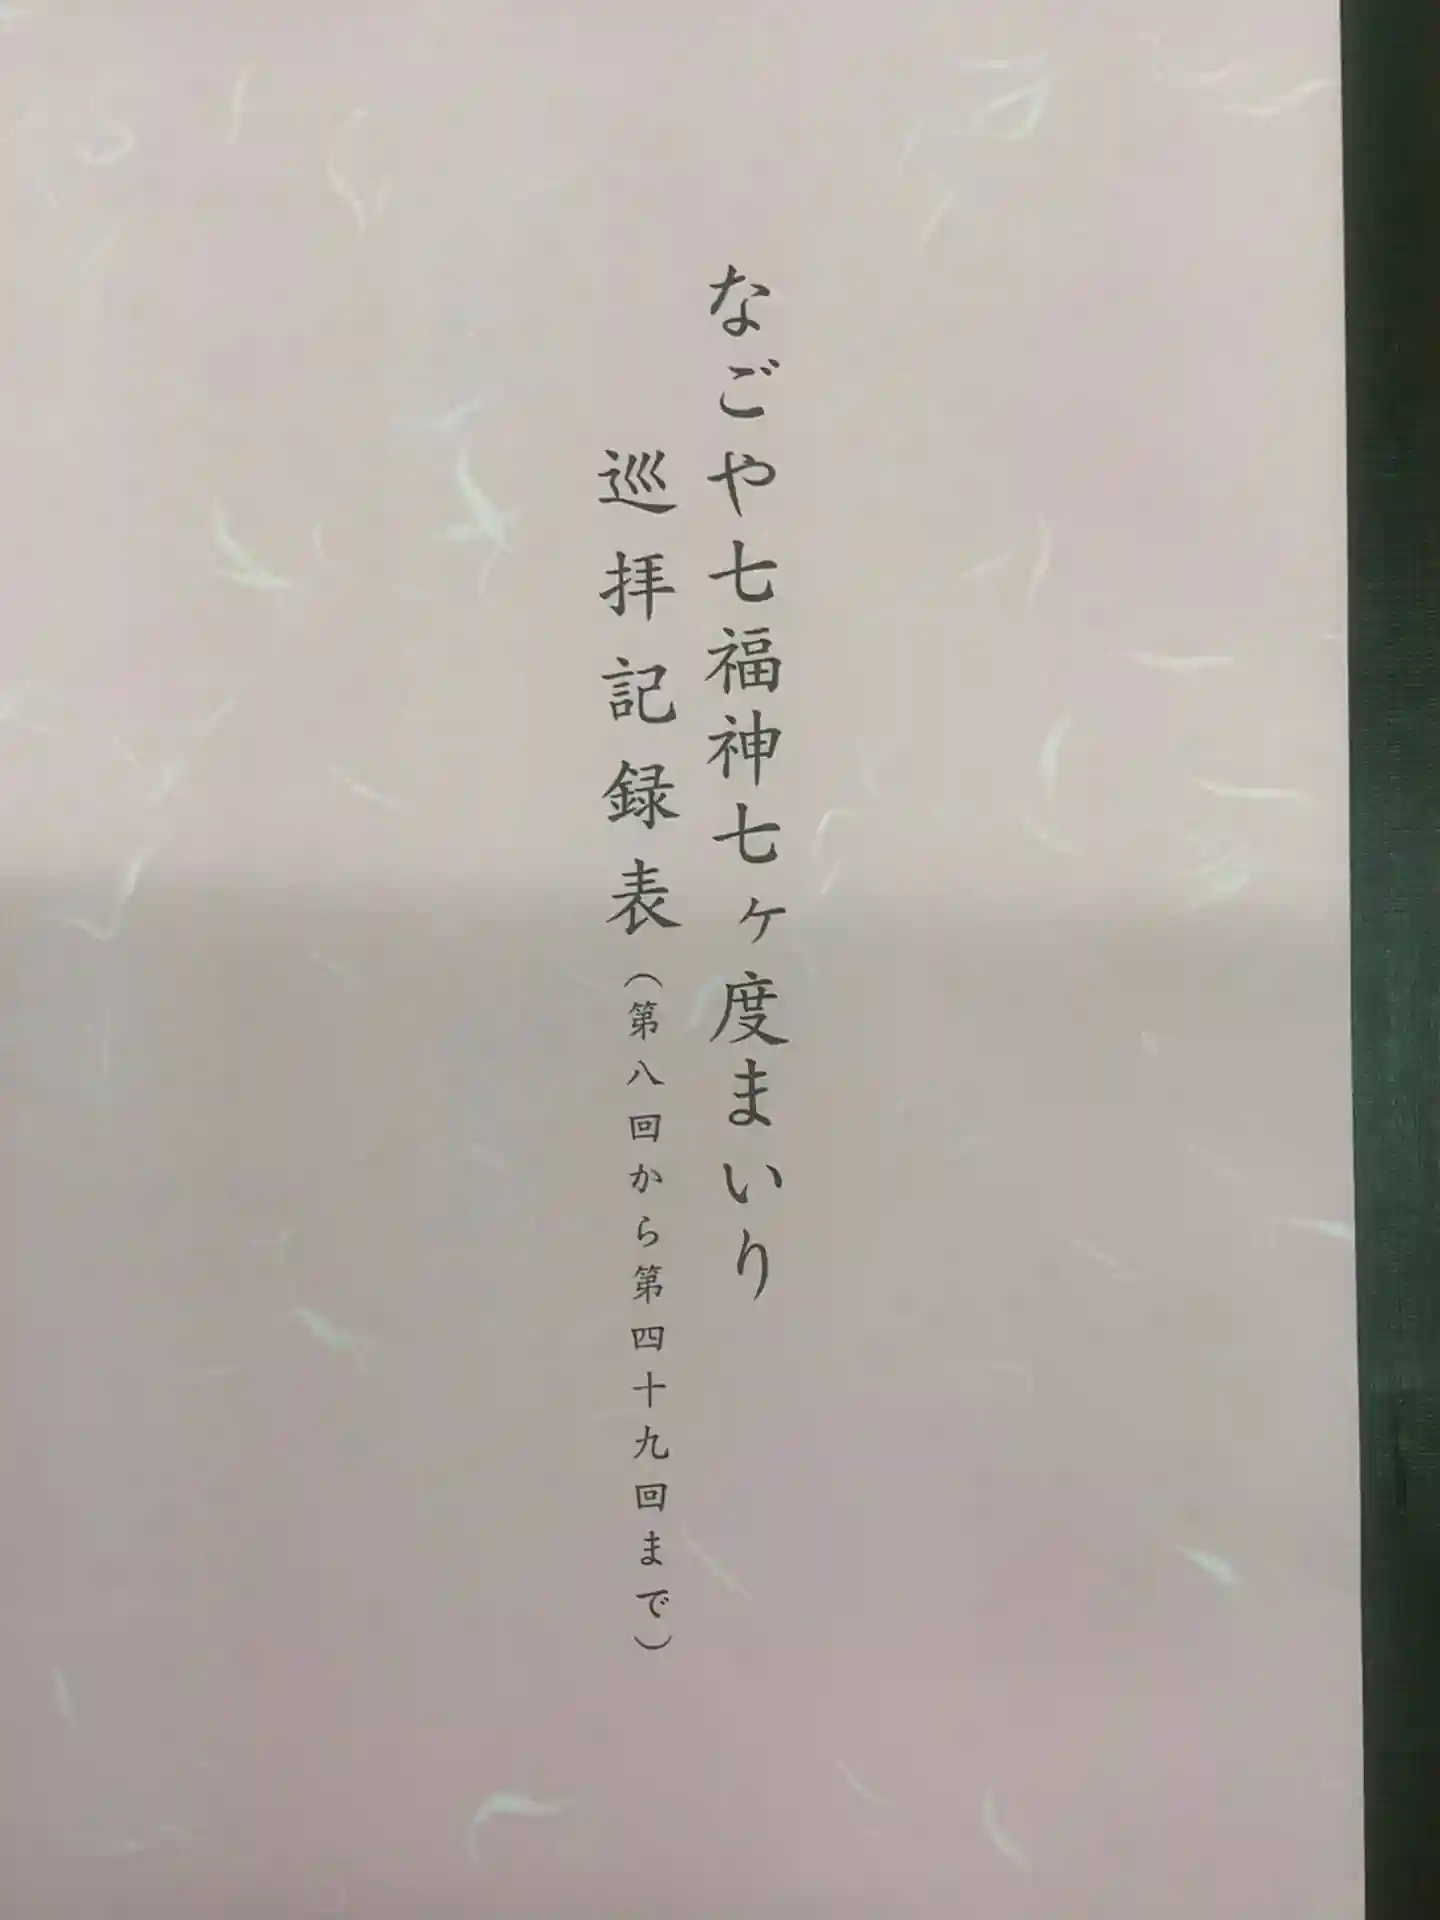 なごや七福神七ヶ度まいり
巡拝記録表（第八回から第四十九回まで）